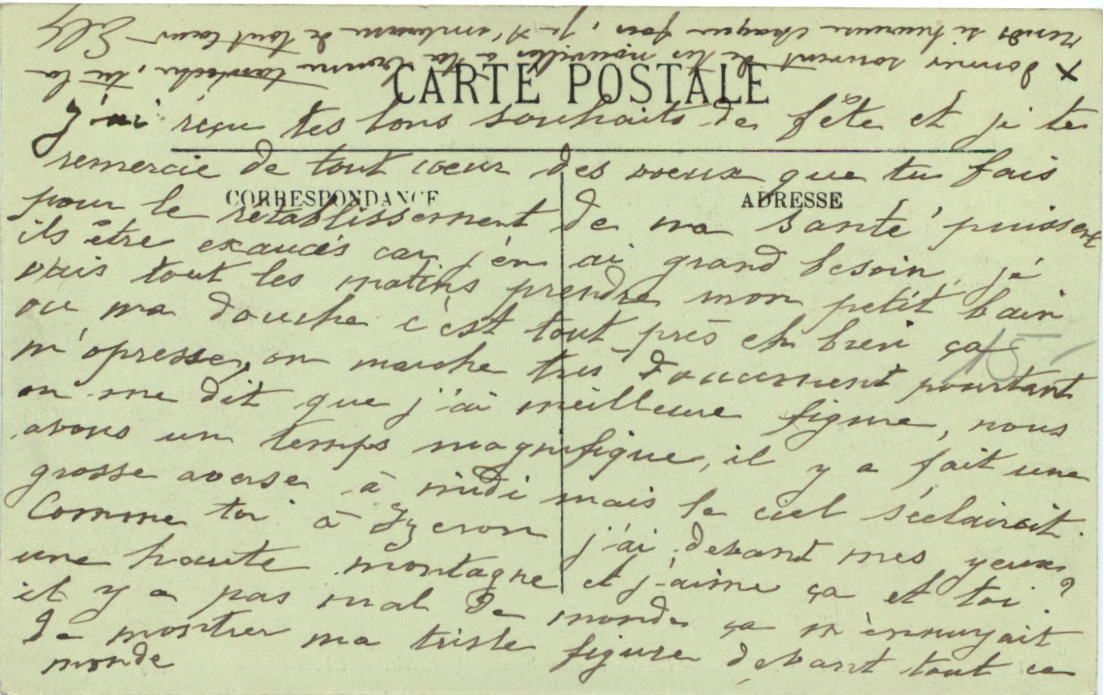 X donner souvent de tes nouvelles à ta bonne tantoche, tu la
rends si heureuse chaque fois, je t'embrasse de tout coeur Elly
CARTE POSTALE
J'ai réçu tes bons souhaits de fête et je te
remercie de tout coeur des voeux que tu fais
CORRESPONDANCE
ADRESSE
pour le rétablissement de ma santé puissent
ils être exaucés car j'en ai grand besoin, je
vais tout les matins prendre mon petit bain
ou ma douche c'est tout près eh bien ça
m'opresse, on marche très doucement pourtant
on me dit que j'ai meilleure figure, nous
avons un temps magnifique, il y a fait une
grosse averse à midi mais le ciel s'éclaircit.
Comme toi à Izeron j'ai devant mes yeux
une haute montagne et j'aime ça et toi ?
il y a pas mal de monde ça m'ennuyait
de montrer ma triste figure devant tout ce
monde
15